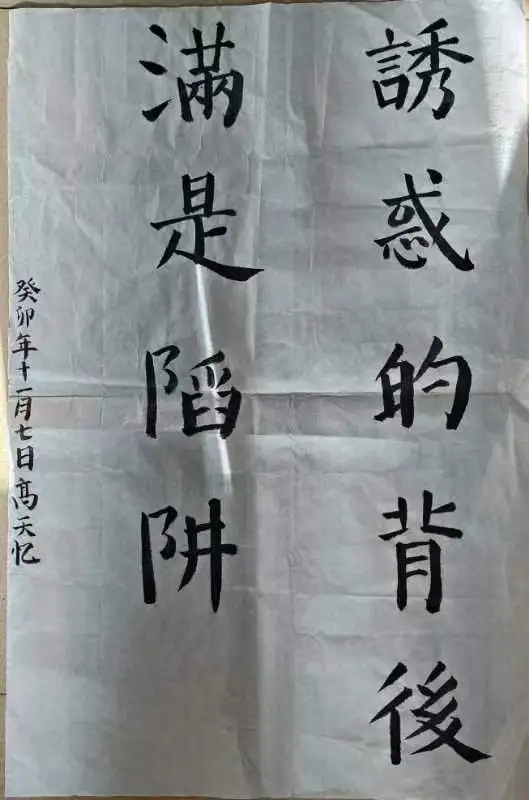 誘惑的背後
滿是陷阱
癸卯年十一月七日高天忆